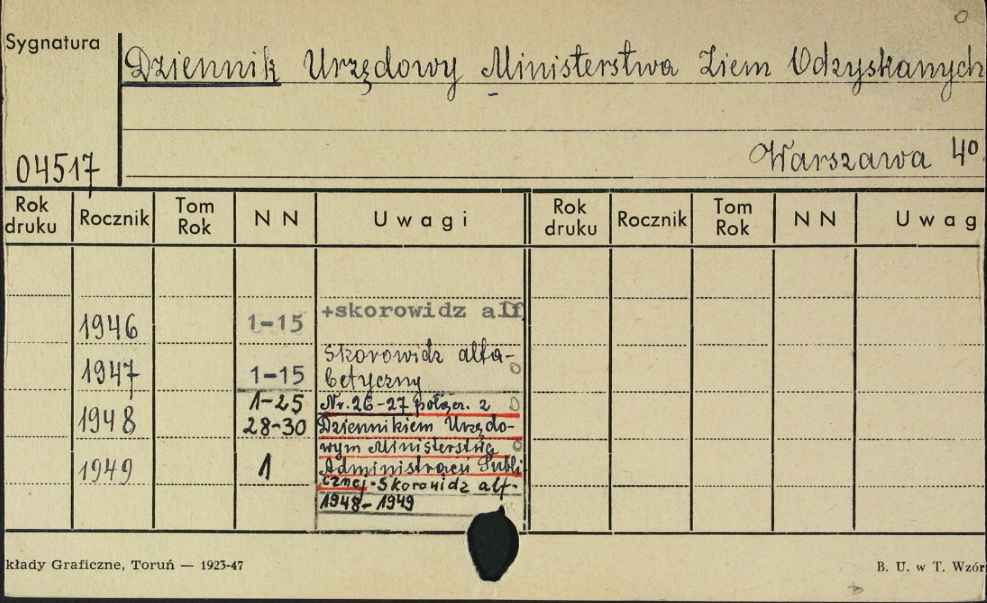 Sygnatura
Dziennik Urzędowy Ministerstwa Ziem Odzyskanych
04517
Warszawa 4º
Rok druku Rocznik Tom Rok N N Uwagi Rok druku Rocznik Tom Rok N N Uwag
+skorowidz alf
1946 1-15
Skorowidz alfa-
1947 1-15 betyczny
1-25 Nr. 26-27 połącz. z
1948 28-30 Dziennikiem Urzędo-
wym Ministerstwa
1949 1 Administracji Publi
cznej. Skorowidz alf.
1948-1949
kłady Graficzne, Toruń — 1923-47
B. U. w T. Wzór